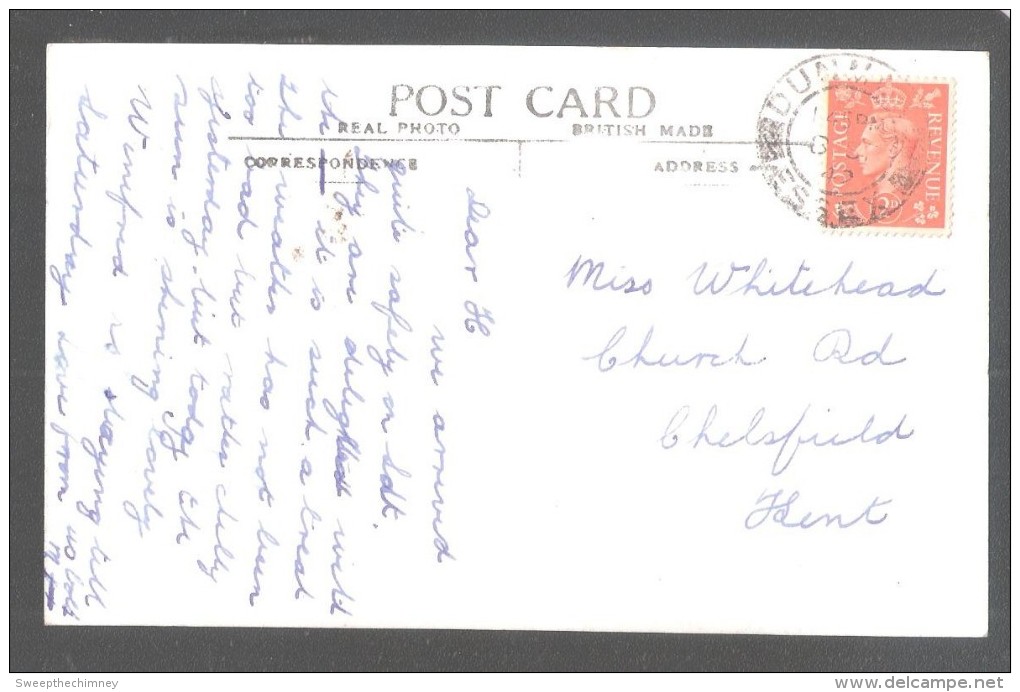 POST CARD
REAL PHOTO BRITISH MADE
CORRESPONDENCE ADDRESS
POSTAGE REVENUE
Dear H
we arrived
quite safely on Sat.
They are delighted with
the it is such a treat
The weather has not been
too bad but rather chilly
yesterday. but today the
sun is shining lovely
Winifred is staying till
Saturday love from us both
Miss Whitehead
Church Rd
Chelsfield
Kent
Sweepthechimney
www.delcampe.net